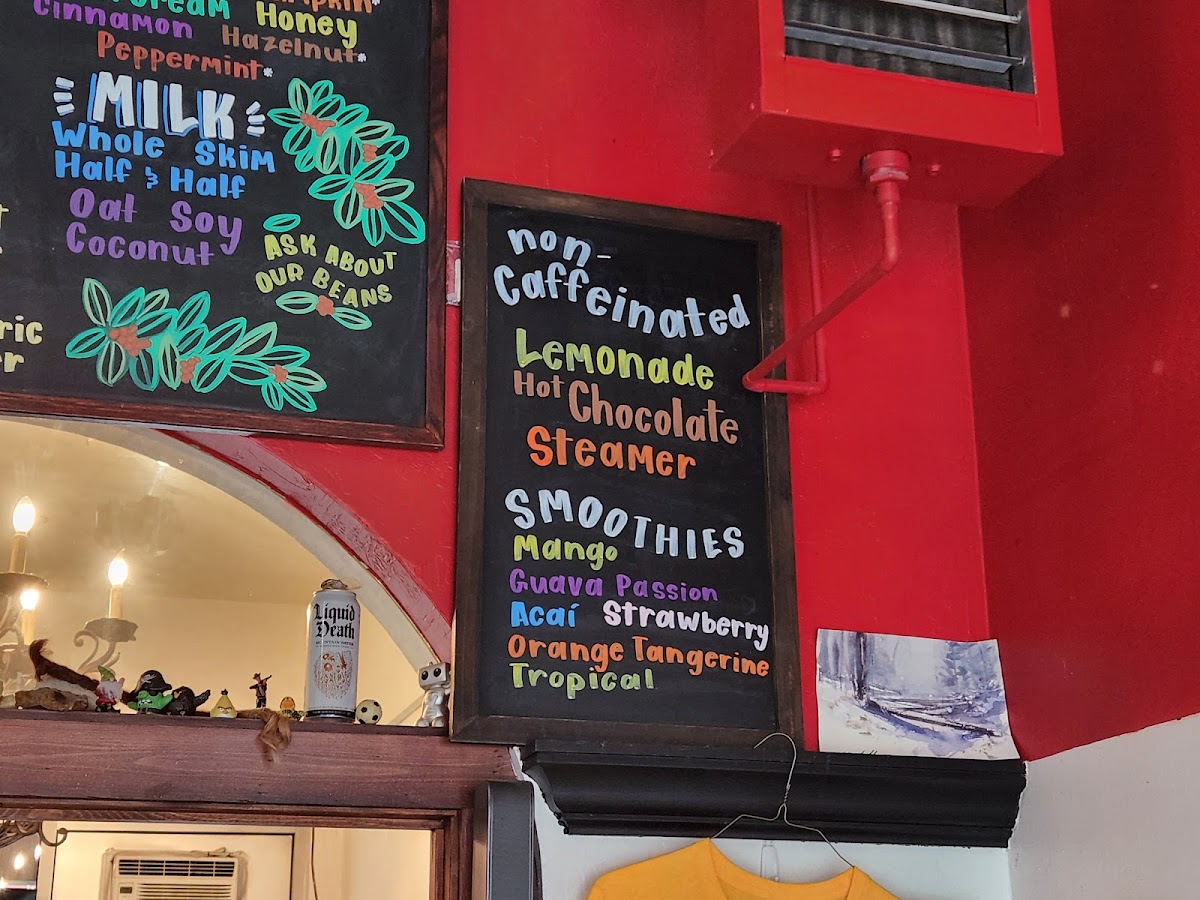 Cream Pumpkin*
Cinnamon Honey
Hazelnut*
Peppermint*
MILK
Whole Skim
Half & Half
Oat Soy
Coconut
ASK ABOUT
OUR BEANS
non-
Caffeinated
Lemonade
Hot Chocolate
Steamer
SMOOTHIES
Mango
Guava Passion
Acaí Strawberry
Orange Tangerine
Tropical
Liquid
Death